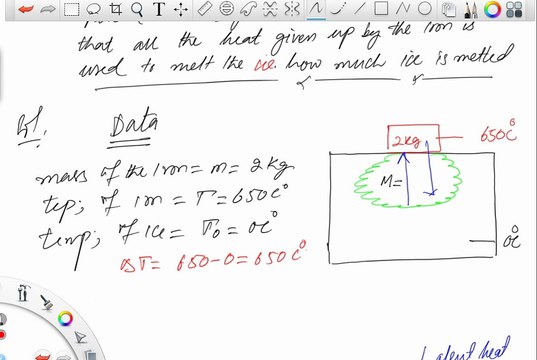 that all the heat given up by the iron is
used to melt the ice. how much ice is melted
Data
mass of the Iron = m = 2kg
tep; of Iron = T = 650C°
temp; of Ice = T₀ = 0C°
ΔT = 650-0 = 650C°
2kg
650C°
M=
0C°
Latent heat